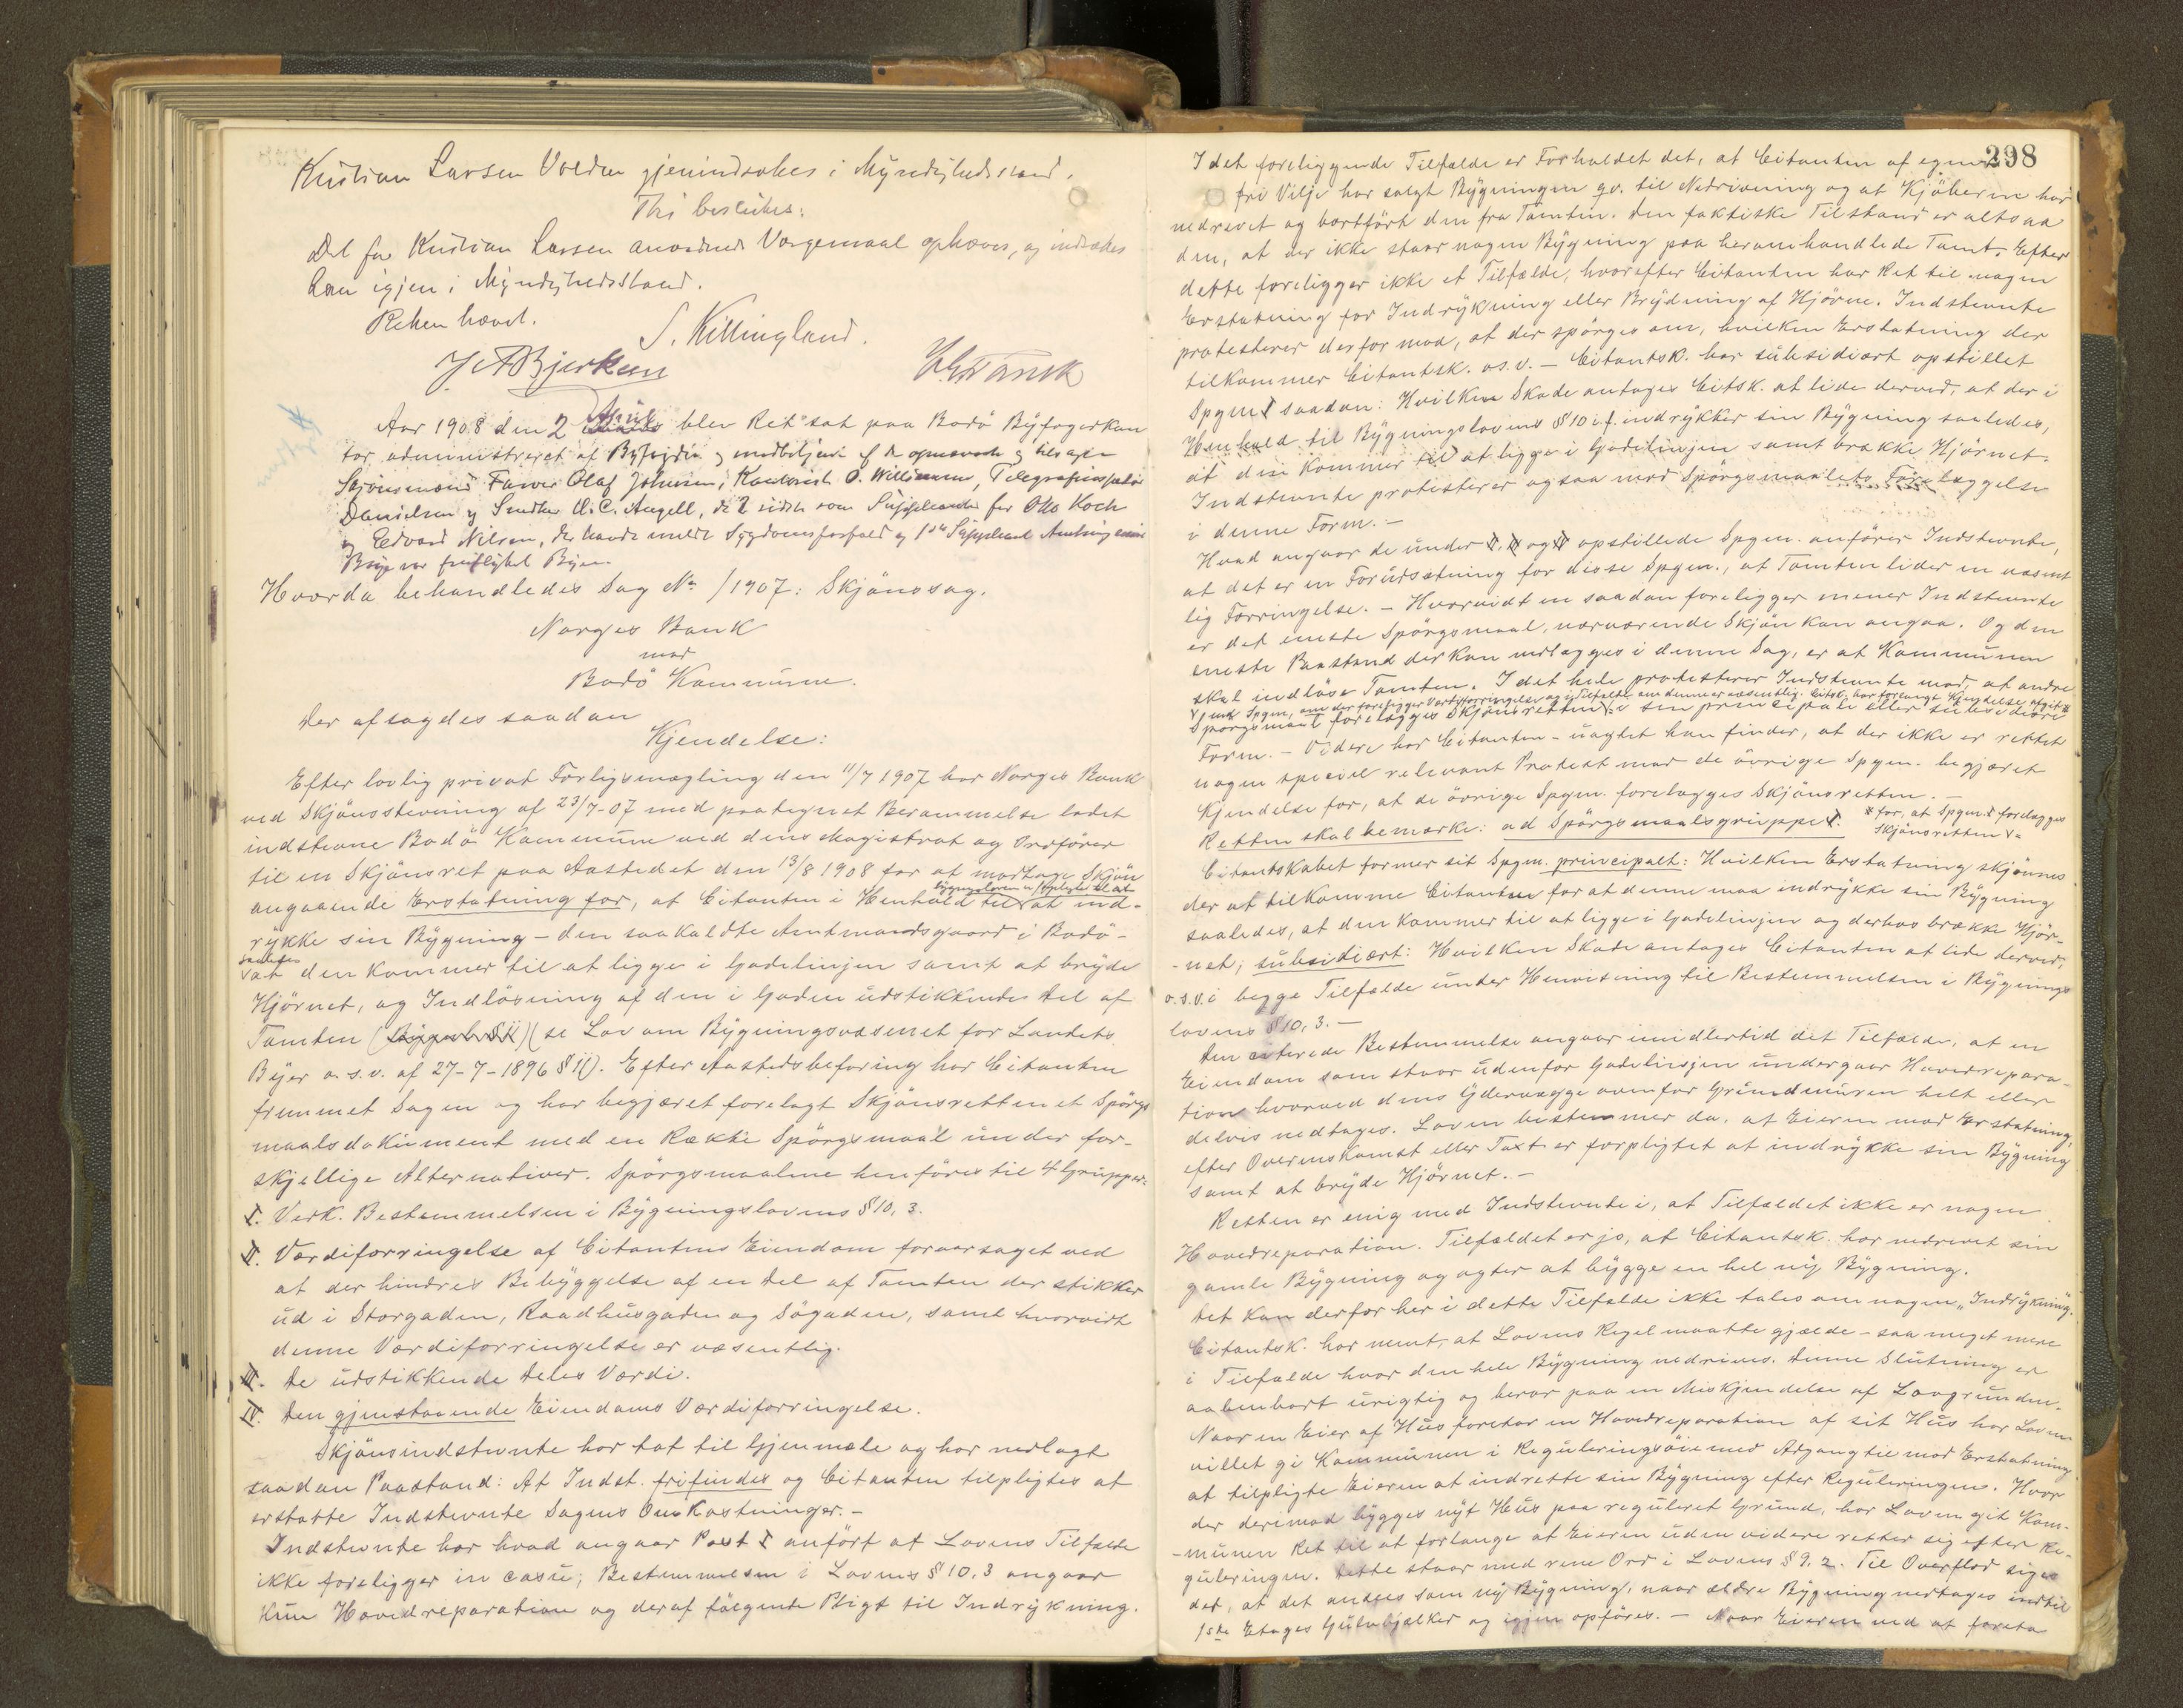 Kristian Larsen Volden gjenindsættes i Myndighedsstand.
Thi besluttes:
Det for Kristian Larsen anordnede Værgemaal ophæves, og indsættes
han igjen i Myndighedsstand.
Retten hævet.
S. Killingland.
J A Bjerkeen
Aar 1908 den 2 April blev Ret sat paa Bodö Byfogedkon
tor administreret af Byfogden og medbetjent af de opnævnte og tilsagte
Skjönsmænd Farver Olaf Johnsen, Kontorist O. Willumsen, Telegrafinspektör
Danielsen og Snedker A. C. Angell, de 2 sidste som Suppleanter for Otto Koch
og Edvard Nilsen, der havde meldt Sygdomsforfald og 1ste Suppleant Amtsingeniör
var fraflyttet Byen.
Hvorda behandledes Sag No /1907: Skjönssag.
Norges Bank
mod
Bodö Kommune.
Der afsagdes saadan
Kjendelse:
Efter lovlig privat Forligsmægling den 11/7 1907 har Norges Bank
ved Skjönsstevning af 23/7-07 med paategnet Berammelse ladet
indstevne Bodö Kommune ved dens Magistrat og Ordförer
til en Skjönsret paa Aastedet den 13/8 1908 for at modtage Skjön
angaaende Erstatning for, at Citanten i Henhold til at ind-
rykke sin Bygning - den saakaldte Amtmandsgaard i Bodö -
saaledes
at den kommer til at ligge i Gadelinjen samt at bryde
Hjörnet, og Indlösning af den i Gaden udstikkende Del af
Tomten (se Lov om Bygningsvæsenet for Landets
Byer o. s. v. af 27-7-1896 § 11). Efter Aastedsbefaring har Citanten
fremmet Sagen og har begjæret forelagt Skjönsretten et Spörgs
maalsdokument med en Række Spörgsmaal under for-
skjellige Alternativer. Spörgsmaalene henföres til 4 Grupper:
I. Vedk. Bestemmelsen i Bygningslovens § 10, 3.
II. Værdiforringelse af Citantens Eiendom foraarsaget ved
at der hindres Bebyggelse af en Del af Tomten der stikker
ud i Storgaden, Raadhusgaden og Sögaden, samt hvorvidt
denne Værdiforringelse er væsentlig.
III. De udstikkende Deles Værdi.
IV. Den gjenstaaende Eiendoms Værdiforringelse.
Skjönsindstevnte har tat til Gjenmæle og har nedlagt
saadan Paastand: At Indst. frifindes og Citanten tilpligtes at
erstatte Indstevnte Sagens Omkostninger. -
Indstevnte har hvad angaar Post I anfört at Lovens Tilfælde
ikke foreligger in casu; Bestemmelsen i Lovens § 10, 3 angaar
kun Hovedreparation og deraf fölgende Pligt til Indrykning.
298
I det foreliggende Tilfælde er Forholdet det, at Citanten af egen
fri Vilje har solgt Bygningen gv. til Nedrivning og at Kjöberen har
nedrevet og bortfört den fra Tomten. Den faktiske Tilstand er altsaa
den, at der ikke staar nogen Bygning paa heromhandlede Tomt. Efter
dette foreligger ikke et Tilfælde, hvorefter Citanten har Ret til nogen
Erstatning for Indrykning eller Brydning af Hjörne. Indstevnte
protesterer derfor mod, at der spörges om, hvilken Erstatning der
tilkommer Citantsk. os.v. - Citantsk. har subsidiært opstillet
Spgm I saadan: Hvilken Skade antages Citsk. at lide derved, at der i
Henhold til Bygningslovens § 10 i f. indrykker sin Bygning saaledes,
at den kommer til at ligge i Gadelinjen samt brække Hjörnet.
Indstevnte protesterer ogsaa mod Spörgsmaalets Forelæggelse
i denne Form. -
Hvad angaar de under II, III og IV opstillede Spgm. anförer Indstevnte,
at det er en Forudsætning for disse Spgm., at Tomten lider en væsent
lig Forringelse. - Hvorvidt en saadan foreligger mener Indstevnte
er det eneste Spörgsmaal, nærværende Skjön kan angaa. Og den
eneste Paastand der kan nedlægges i denne Sag, er at Kommunen
skal indlöse Tomten. I det hele protesterer Indstevnte mod, at andre
und Spgm, om der foreligger Værdiforringelse og i Tilfælde om denne er væsentlig. Citsk. har forlangt Kjendelse afgit
Spörgsmaal forelægges Skjönsretten i sin principale eller subsidiære
Form. - Videre har Citanten - uagtet han finder, at der ikke er rettet
nogen speciel relevant Protest mod de övrige Spgm. begjæret
Kjendelse for, at de övrige Spgm. forelægges Skjönsretten. -
* for, at Spgm. I forelægges
Skjönsretten
Retten skal bemærke: ad Spörgsmaalsgruppe I.
Citantskabet former sit Spgm. principalt: Hvilken Erstatning skjönnes
der at tilkomme Citanten for at denne maa indrykke sin Bygning
saaledes, at den kommer til at ligge i Gadelinjen og derhos brække Hjör-
-net; subsidiært: Hvilken Skade antages Citanten at lide derved,
o.s.v. i begge Tilfælde under Henvisning til Bestemmelsen i Bygnings
lovens § 10, 3. -
Den citerede Bestemmelse angaar imidlertid det Tilfælde, at en
Eiendom som staar udenfor Gadelinjen undergaar Hovedrepara-
tion hvorved dens Ydervægge ovenfor Grundmuren helt eller
delvis nedtages. Loven bestemmer da, at Eieren mod Erstatning,
efter Overenskomst eller Taxt er forpligtet at indrykke sin Bygning
samt at bryde Hjörnet. -
Retten er enig med Indstevnte i, at Tilfældet ikke er nogen
Hovedreparation. Tilfældet er jo, at Citantsk. har nedrevet sin
gamle Bygning og agter at bygge en hel ny Bygning.
Det kan derfor her i dette Tilfælde ikke tales om nogen „Indrykning".
Citantsk. har ment, at Lovens Regel maatte gjælde - saa meget mere
i Tilfælde hvor den hele Bygning nedrives. Denne Slutning er
aabenbart urigtig og beror paa en Miskjendelse af Lovgrunden.
Naar en Eier af Hus foretar en Hovedreparation af sit Hus har Loven
villet gi Kommunen i Reguleringsöiemed Adgang til mod Erstatning
at tilpligte Eieren at indrette sin Bygning efter Reguleringen. Hvor
der derimod bygges nyt Hus paa reguleret Grund, har Loven git Kom-
-munen Ret til at forlange at Eieren uden videre retter sig efter Re-
guleringen. Dette staar med rene Ord i Lovens § 9, 2. Til Overflod siges
det, at det ansees som ny Bygning, naar ældre Bygning nedtages indtil
1ste Etages Gulvbjælker og igjen opföres. - Naar Eieren ved at foreta